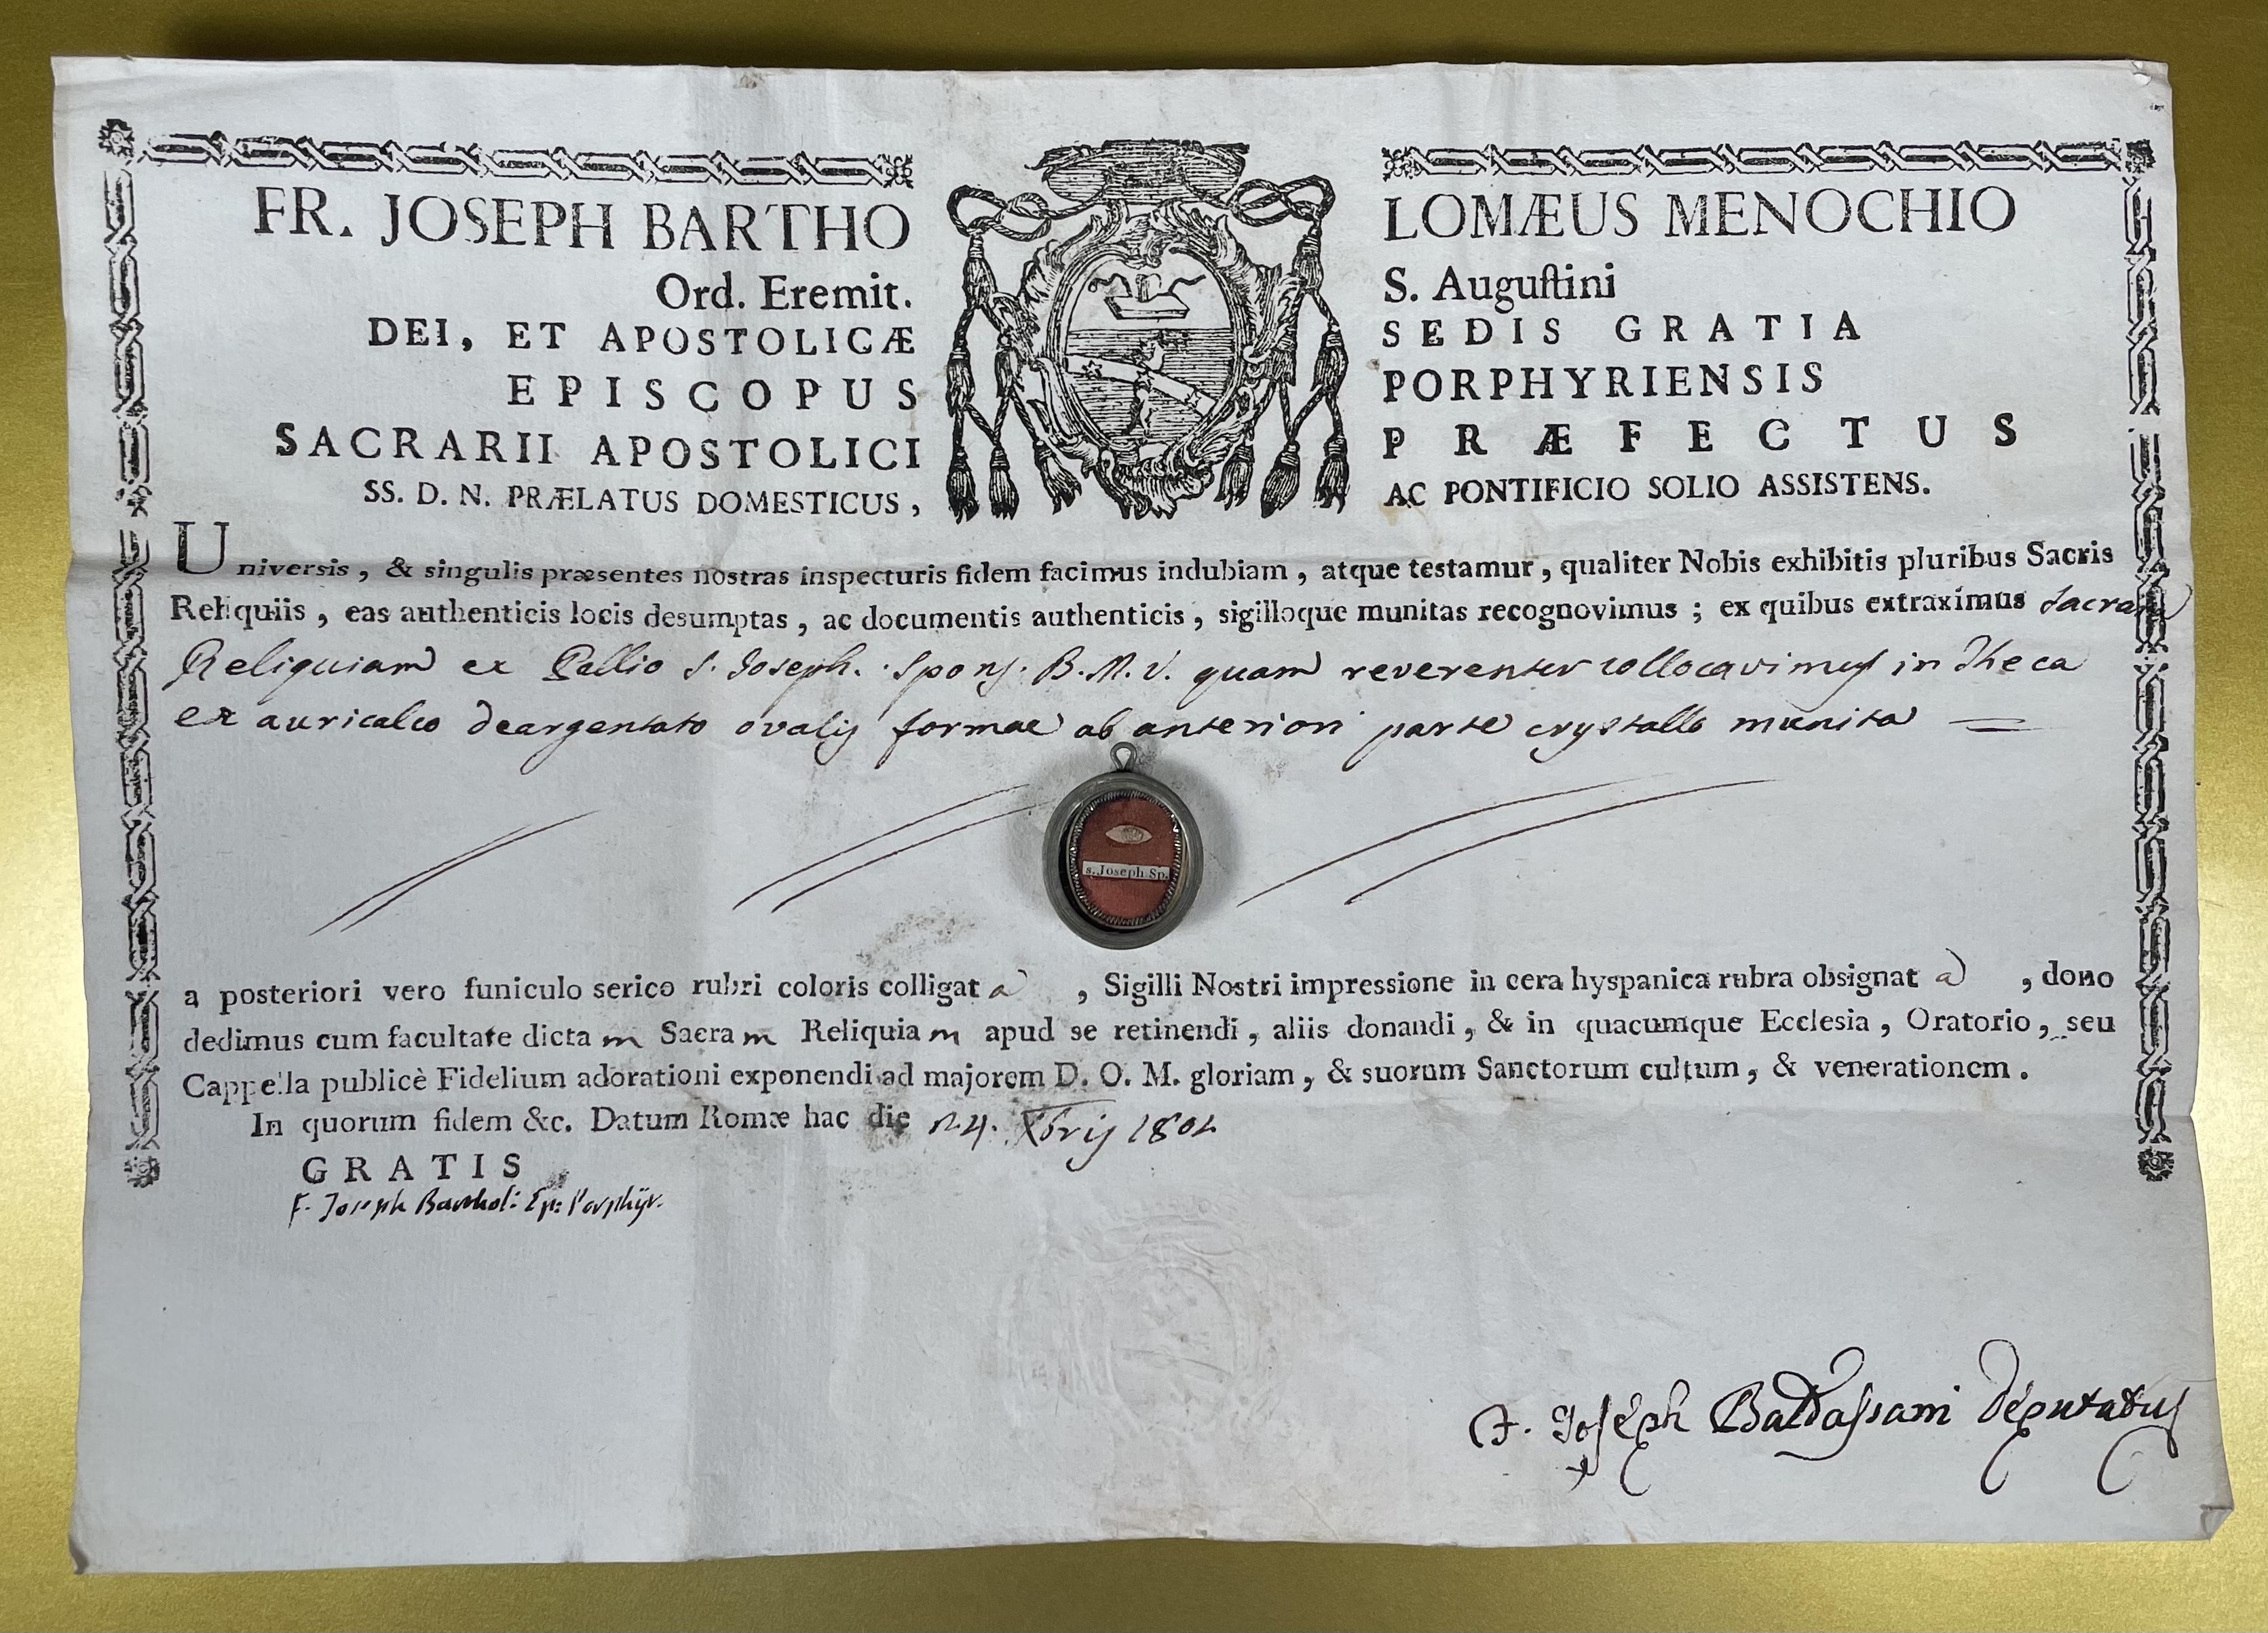 FR. JOSEPH BARTHO LOMÆUS MENOCHIO
Ord. Eremit. S. Auguſtini
DEI, ET APOSTOLICÆ SEDIS GRATIA
EPISCOPUS PORPHYRIENSIS
SACRARII APOSTOLICI PRÆFECTUS
SS. D. N. PRÆLATUS DOMESTICUS, AC PONTIFICIO SOLIO ASSISTENS.
Universis, & singulis præsentes nostras inspecturis fidem facimus indubiam, atque testamur, qualiter Nobis exhibitis pluribus Sacris
Reliquiis, eas authenticis locis desumptas, ac documentis authenticis, sigilloque munitas recognovimus; ex quibus extraximus Sacram
Reliquiam ex Pallio S. Joseph. Spons. B. M. V. quam reverenter collocavimus in Theca
ex auricalco deargentato ovalis formae ab anteriori parte crystallo munita =
s. Joseph Sp.
a posteriori vero funiculo serico rubri coloris colligat a, Sigilli Nostri impressione in cera hyspanica rubra obsignat a, dono
dedimus cum facultate dicta m Sacra m Reliquia m apud se retinendi, aliis donandi, & in quacumque Ecclesia, Oratorio, seu
Cappella publicè Fidelium adorationi exponendi ad majorem D. O. M. gloriam, & suorum Sanctorum cultum, & venerationem.
In quorum fidem &c. Datum Romæ hac die 24. Xbris
GRATIS
F. Joseph Barthol: Ep: Porphÿr.
F. Joseph Baldassarri Deputatus